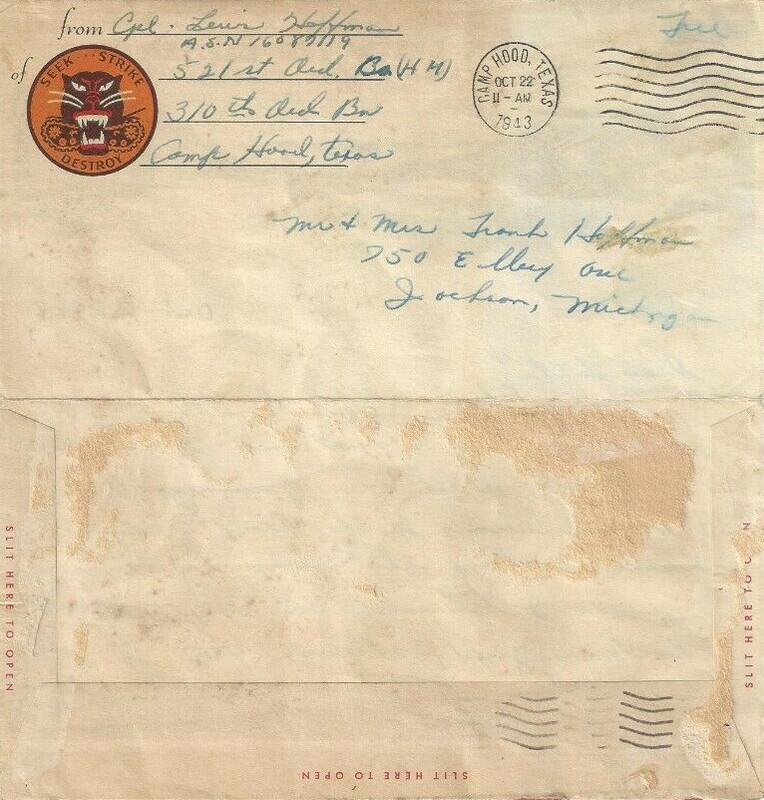 from Cpl. Lewis Hoffman
A.S.N 16087119
of 521st Ord. Bn (H M)
310th Ord Bn
Camp Hood, Texas
SEEK STRIKE
DESTROY
CAMP HOOD, TEXAS
OCT 22
11 - AM
1943
Free
Mr & Mrs Frank Hoffman
750 Ellery Ave
Jackson, Michigan
SLIT HERE TO OPEN
SLIT HERE TO O N
SLIT HERE TO OPEN